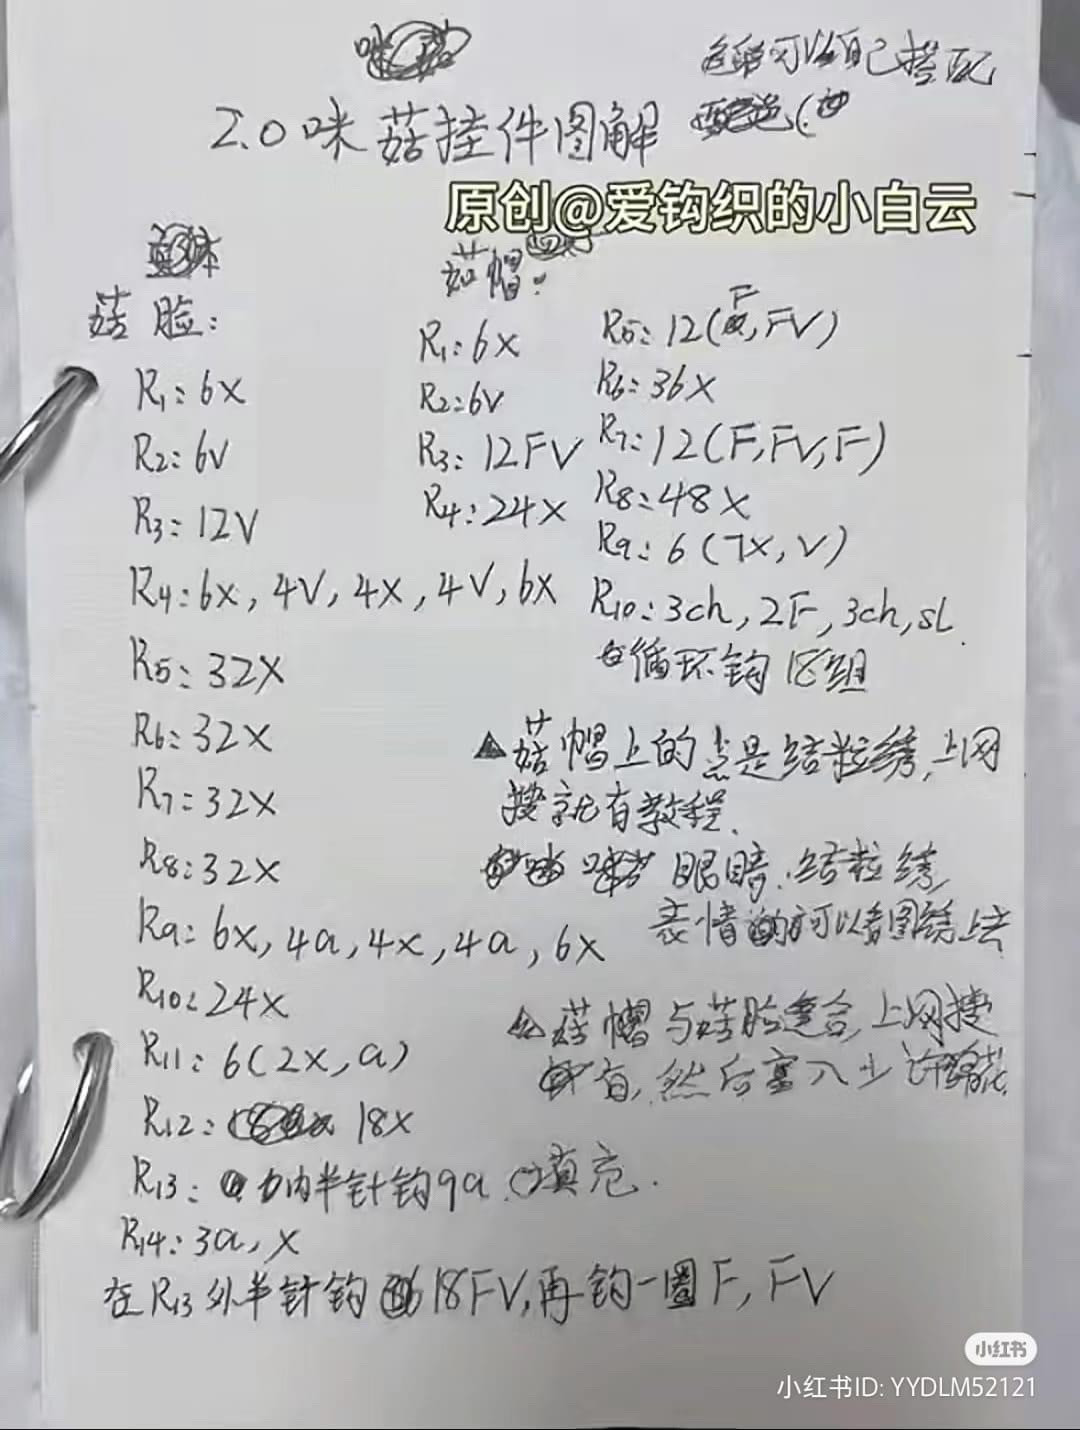 色可以自己搭配
2.0咪菇挂件图解
原创@爱钩织的小白云
菇脸:
R1:6X
R2:6V
R3:12V
R4:6X,4V,4X,4V,6X
R5:32X
R6:32X
R7:32X
R8:32X
R9:6X,4a,4X,4a,6X
R10:24X
R11:6(2X,a)
R12:18X
R13:内半针钩9a填充.
R14:3a,X
在R13外半针钩18FV,再钩一圈F,FV
菇帽:
R1:6X
R2:6V
R3:12FV
R4:24X
R5:12(F,FV)
R6:36X
R7:12(F,FV,F)
R8:48X
R9:6(7X,V)
R10:3ch,2F,3ch,sL
循环钩18组
▲菇帽上的点是结粒绣,上网
搜就有教程.
眼睛.结粒绣
表情可以看图绣上去
△菇帽与菇脸缝合,上网搜
有,然后塞入少许棉花
小红书
小红书ID: YYDLM52121